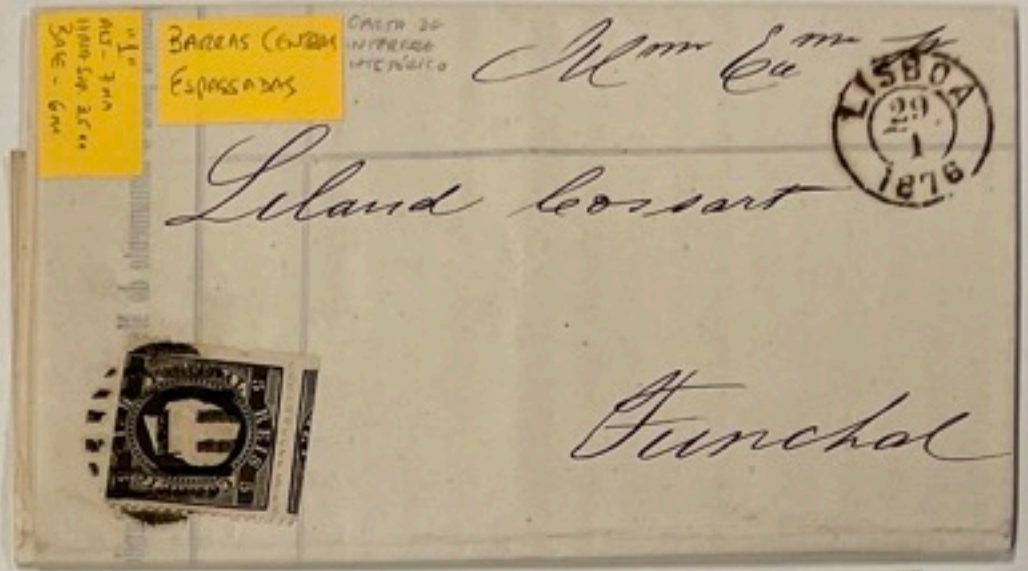 "1"
ALT - 7 MM
BASE - 6 MM
BARRAS CENTRAIS
ESPASSADAS
CARTA DE
INTERESSE
HISTÓRICO
Illmo Exmo Sr
LISBOA
29
1
1876
Leland Cossart
Funchal
5 REIS 5